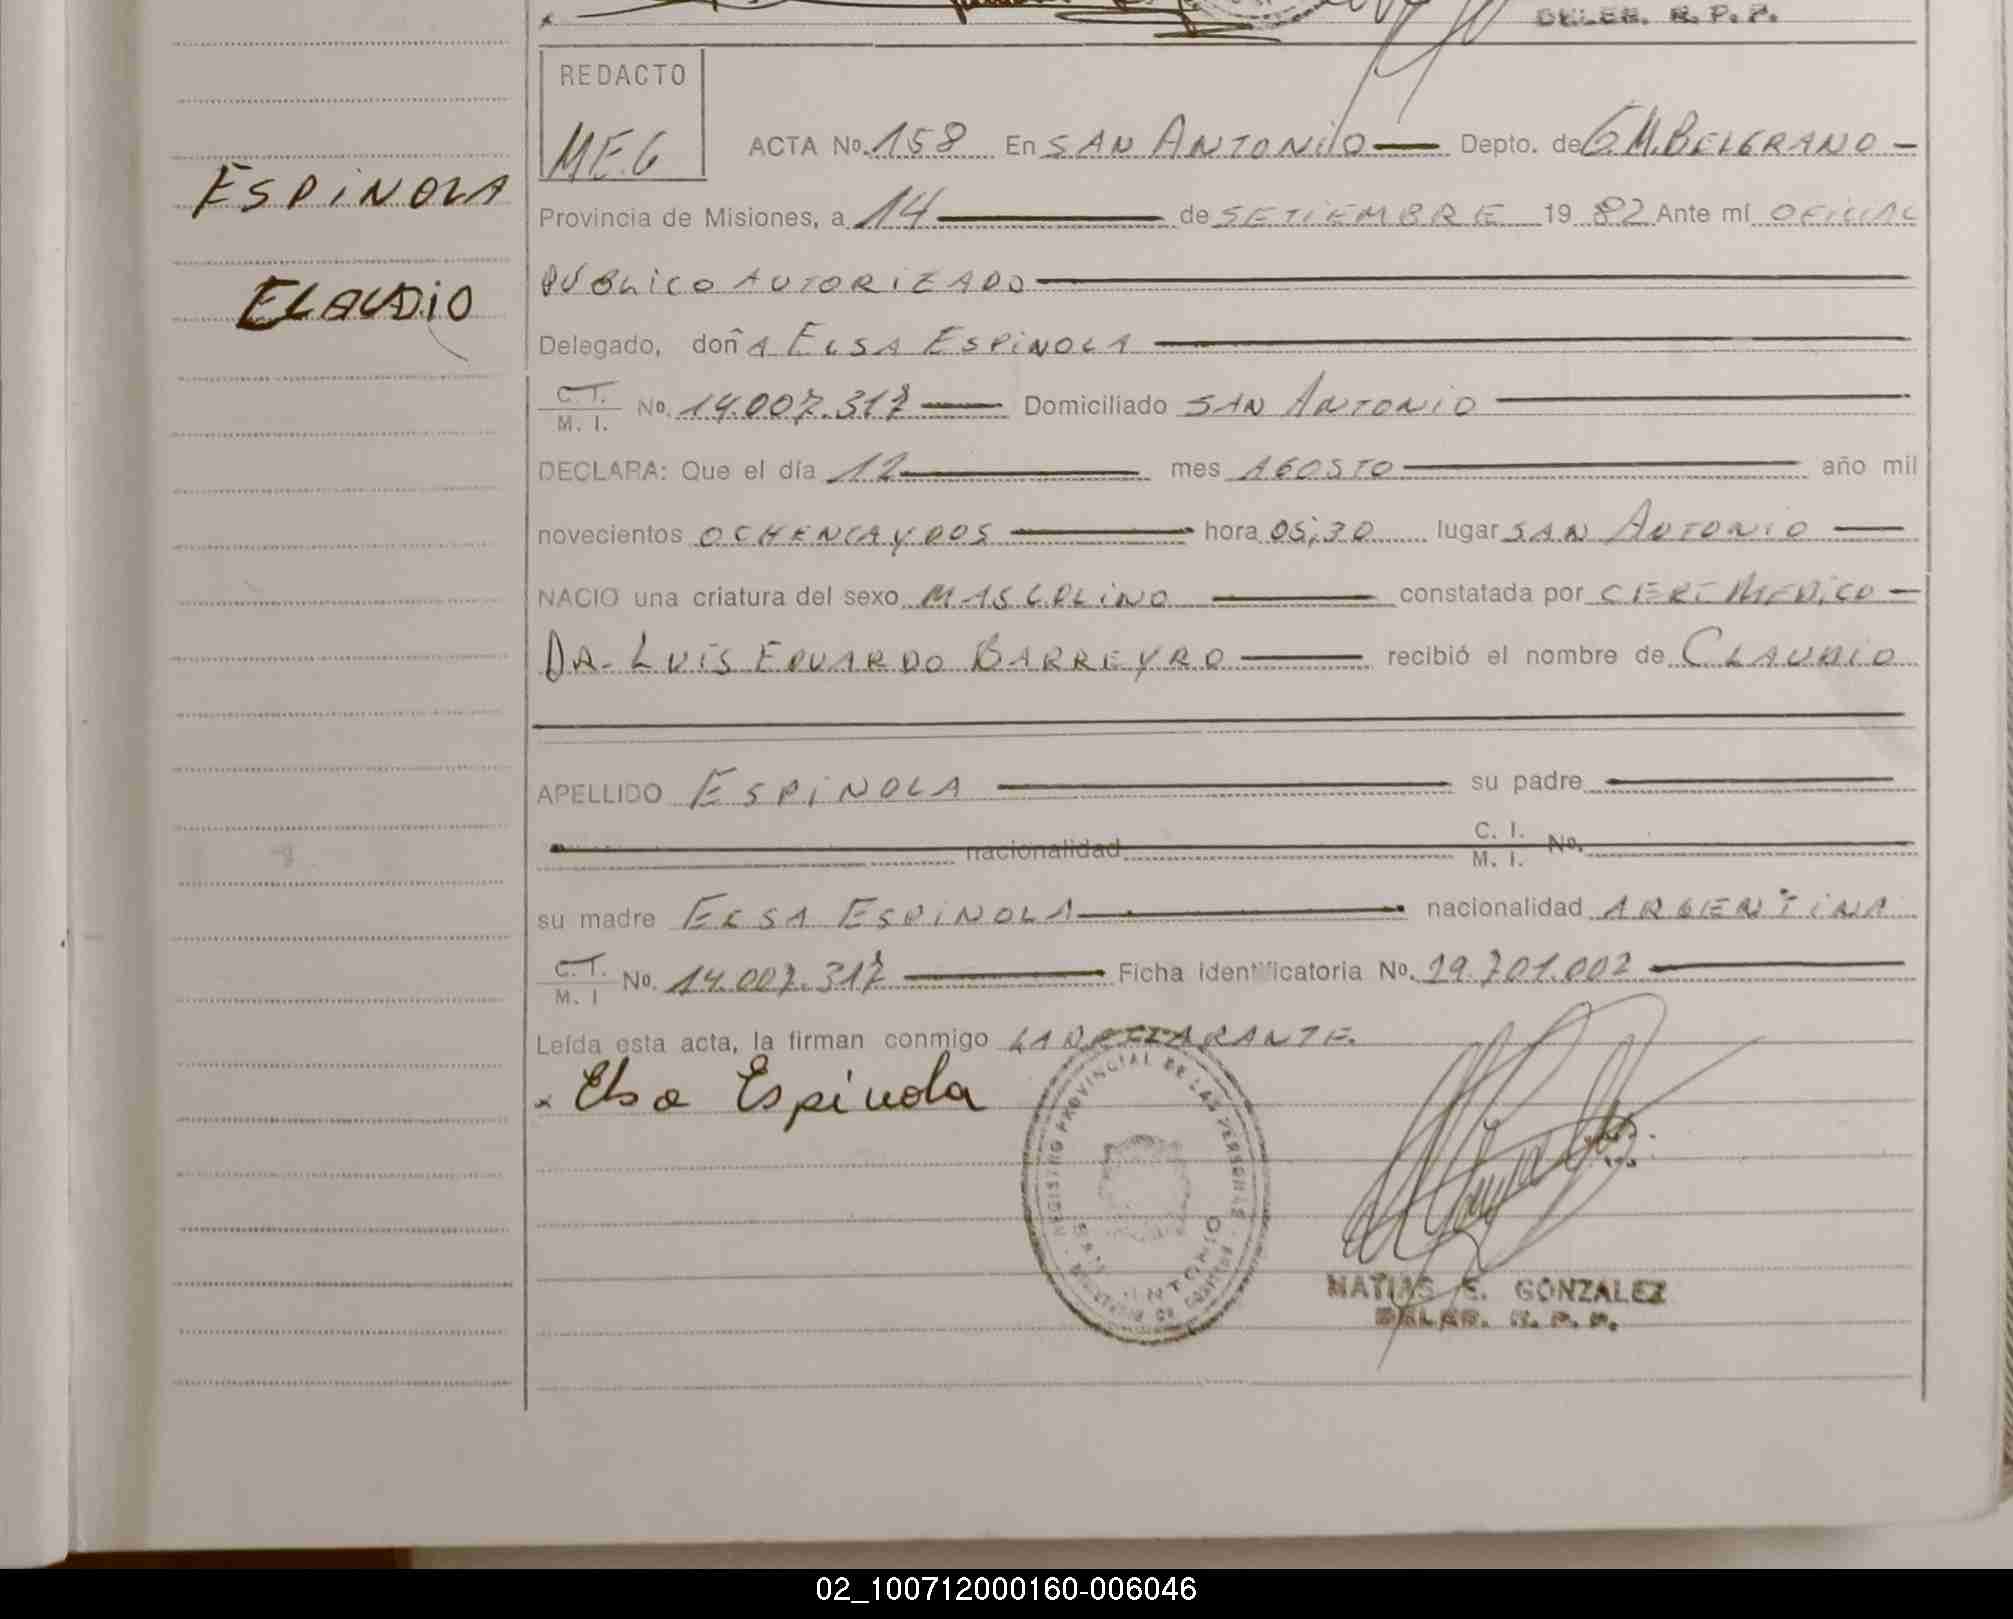 DELEG. R. P. P.
REDACTO
MEG
ACTA No. 158 En SAN ANTONIO Depto. de G.M.BELGRANO
ESPINOLA
Provincia de Misiones, a 14 de SETIEMBRE 1982 Ante mí OFICIAL
PÚBLICO AUTORIZADO
CLAUDIO
Delegado, doñA ELSA ESPINOLA
C. I. M. I. No. 14.007.317 Domiciliado SAN ANTONIO
DECLARA: Que el día 12 mes AGOSTO año mil
novecientos OCHENTA Y DOS hora 05;30 lugar SAN ANTONIO
NACIO una criatura del sexo MASCULINO constatada por CERT MEDICO
DR. LUIS EDUARDO BARREYRO recibió el nombre de CLAUDIO
APELLIDO ESPINOLA su padre
nacionalidad C. I. M. I. No.
su madre ELSA ESPINOLA nacionalidad ARGENTINA
C. I. M. I No. 14.007.317 Ficha identificatoria No. 29.701.002
Leída esta acta, la firman conmigo LA DECLARANTE.
x Elsa Espinola
REGISTRO PROVINCIAL DE LAS PERSONAS
SAN ANTONIO
MATIAS E. GONZALEZ
DELEG. R. P. P.
02_100712000160-006046